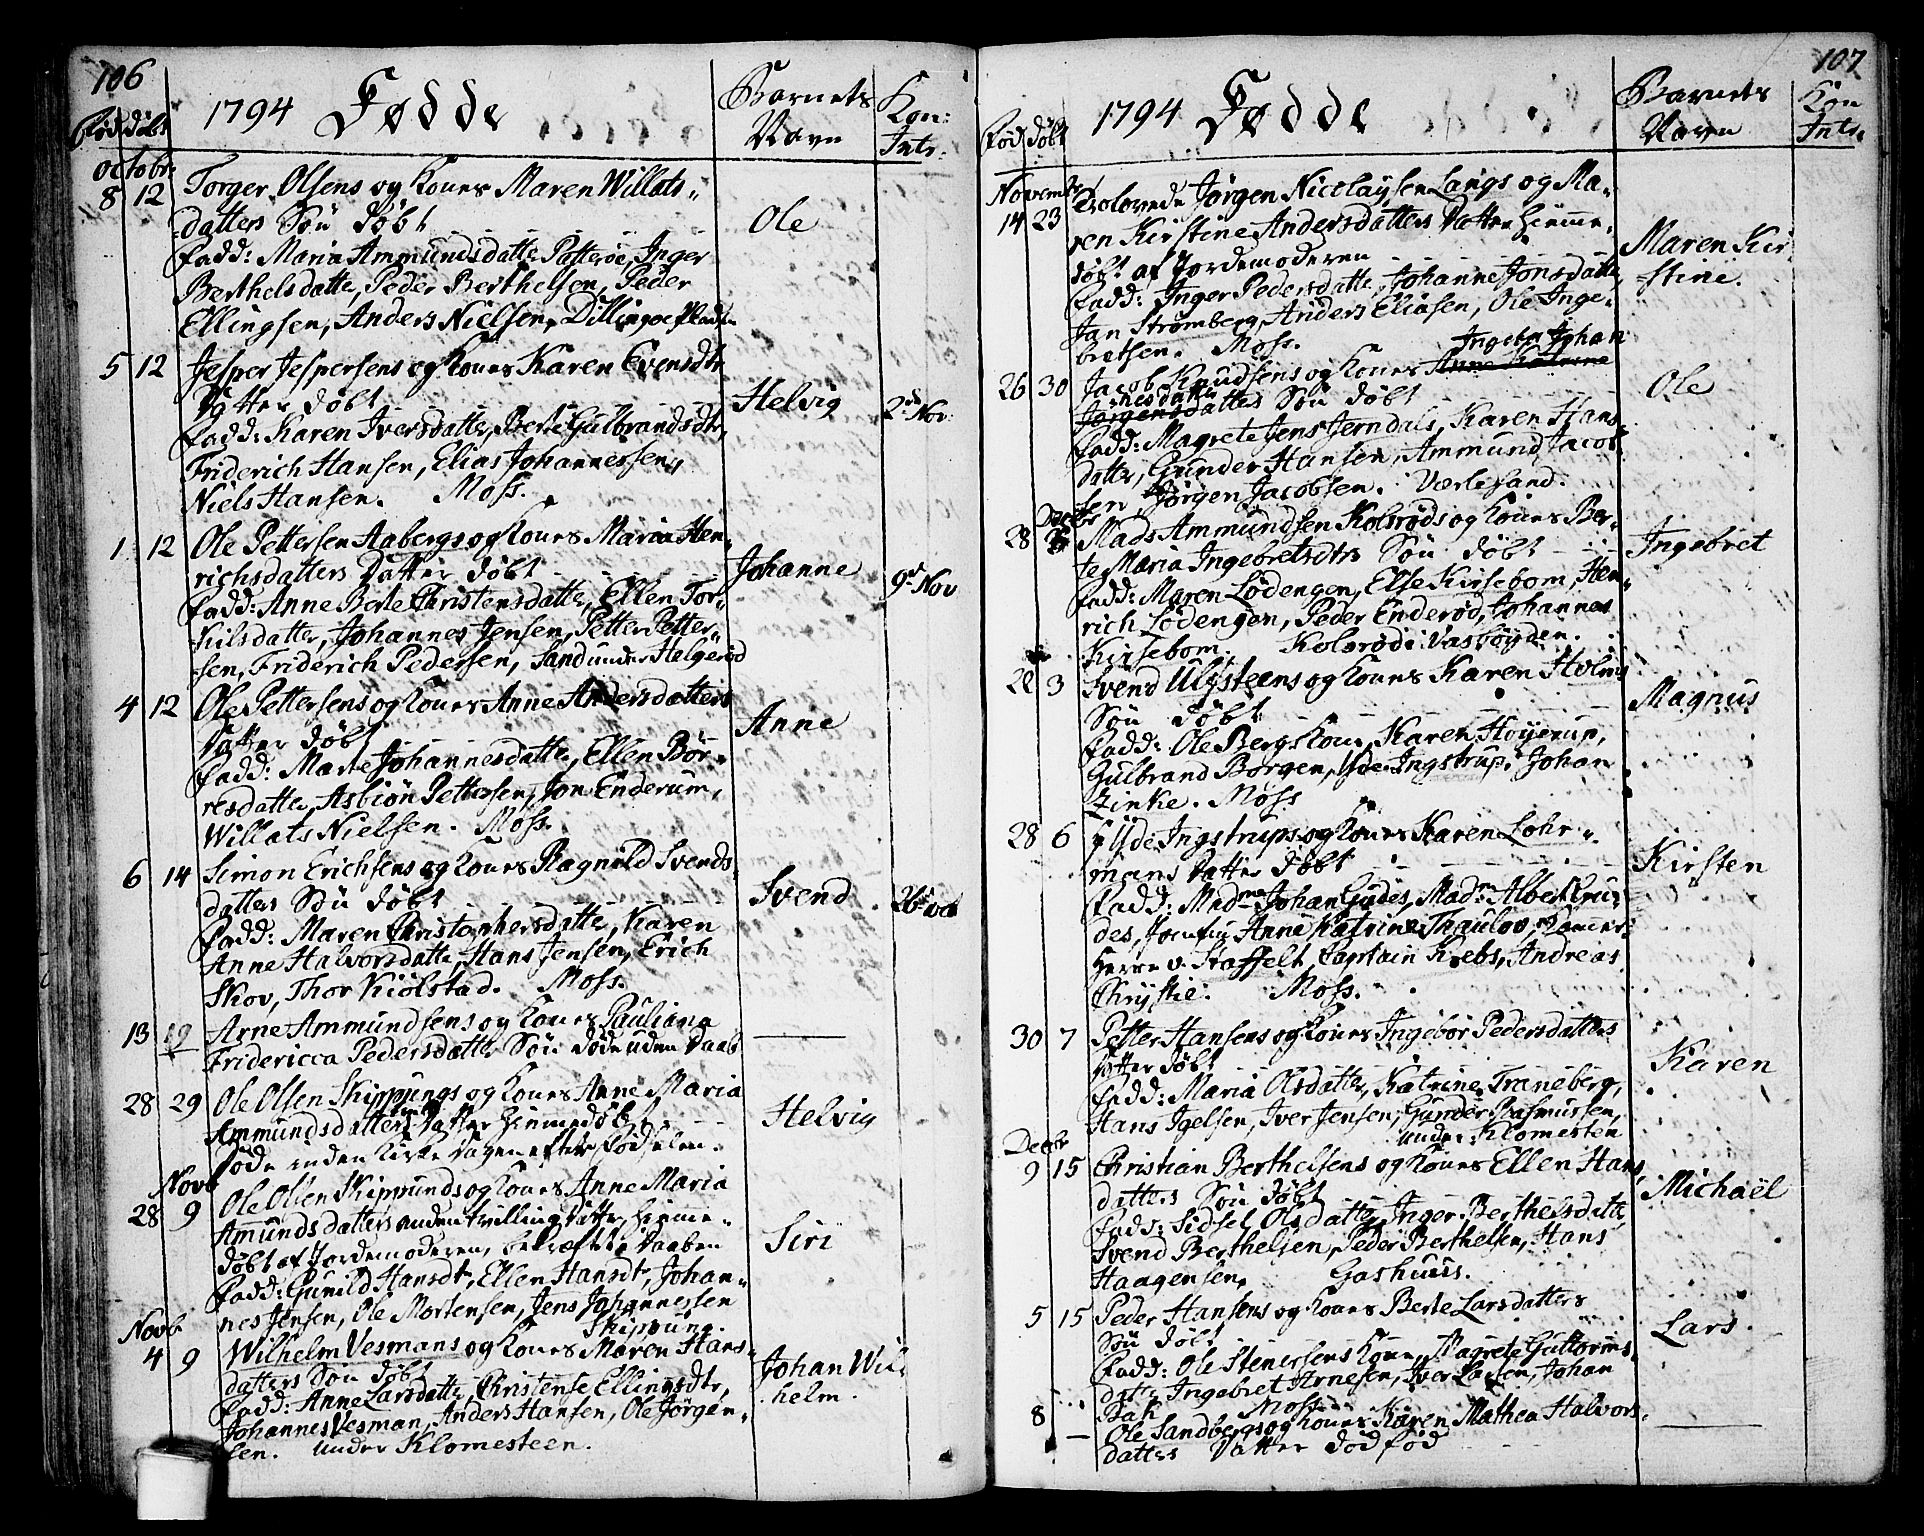 106
1794 Fødde
Barnets Navn
Kon: Intr:
Fød døbt
Octobr:
8 12 Torger Olsens og Kones Maren Willats-
datters Søn døbt
Ole
Fadd: Maria Ammundsdatter Patterøe, Inger
Berthelsdatter, Peder Berthelsen, Peder
Ellingsen, Anders Nielsen, Dillingøe Pladsen
5 12 Jesper Jespersens og Kones Karen Evensdtr
Datter døbt
Helvig
2d Nov:
Fadd: Karen Iversdatter, Berte Gulbrandsdtr,
Friderich Hansen, Elias Johannessen,
Niels Hansen. Moss.
1 12 Ole Pettersen Aabergs og Kones Maria Hen-
richsdatters Datter døbt
Johanne
9d Nov
Fadd: Anne Berte Christensdatter, Ellen Tor-
kilsdatter, Johannes Jensen, Petter Petter-
sen, Friderich Pedersen, Sand under Helgerød
4 12 Ole Pettersens og Kones Anne Andersdatters
Datter døbt
Anne
Fadd: Marte Johannesdatter, Ellen Bør-
resdatter, Asbiön Pettersen, Jon Enderum,
Willats Nielsen. Moss.
6 14 Simon Erichsens og Kones Ragnild Svends-
datters Søn døbt
Svend
Fadd: Maren Christophersdatter, Karen
Anne Halvorsdatter, Hans Jensen, Erich
Skov, Thor Kiölstad. Moss.
13 19 Arne Ammundsens og Kones Pauliana
Fridericca Pedersdatters Søn døde uden Daab
28 29 Ole Olsen Skippungs og Kones Anne Maria
Ammundsdatters Datter hiemmedøbt
Helvig
døde inden Kirke dagen efter Fødselen.
Novb
28 9 Ole Olsen Skippunds og Kones Anne Maria
Amundsdatters anden tvilling Datter, hiemme-
døbt af Jordemoderen, bekræftede Daaben
Siri
Fadd: Gunild Hansdt, Ellen Hansdt, Johan-
nes Jensen, Ole Mortensen, Jens Johannessen
Skippung.
Novb
4 9 Wilhelm Vesmans og Kones Maren Hans-
datters Søn døbt
Johan Wil-
helm.
Fadd: Anne Larsdatter, Christense Ellingsdtr,
Johannes Vesman, Anders Hansen, Ole Jørgen-
sen. under Klomesteen.
107
1794 Fødde
Barnets Navn
Kon Intr.
Fød døbt
Novembr
14 23 Trolovede Jørgen Nicolaysen Langs og Ma-
ren Kirstine Andersdatters Datter hiemme-
døbt af Jordemoderen
Maren Kir-
stine.
Fadd: Inger Pedersdatter, Johanne Jonsdatter,
Jan Strømberg, Anders Eliasen, Ole Inge-
bretsen. Moss.
Ingebr Johan
26 30 Jacob Knudsens og Kones Anne Katrine
nesdatter
Jørgensdatters Søn døbt
Ole
Fadd: Magrete Jens Jerndals, Karen Hans-
datter, Gunder Hansen, Ammund Jacob-
sen, Jørgen Jacobsen. Værlesand.
Decbr
28 Mads Ammundsen Kolsrøds og Kones Ber-
te Maria Ingebretsdtrs Søn døbt
Ingebret
Fadd: Maren Lødengen, Else Kirsebom, Hen-
rich Lødengen, Peder Enderød, Johannes
Kirsebom, Kolsrød i Vasbøyden.
22 3 Svend Ulysteens og Kones Karen Holms
Søn døbt
Magnus
Fadd: Ole Bergs Kone, Karen Høyerup,
Gulbrand Borgen, Yde Ingstrup, Johan
Zinke. Moss
28 6 Yde Ingstrups og Kones Karen Lohr-
mans Datter døbt
Kirsten
Fadd: Madme Johan Gudes, Madm Albert Gu-
des, Jomfru Anne Katrine Thaulov, Kammer-
Herre v. Staffelt, Captain Krebs, Andreas
Chrystie. Moss.
30 7 Petter Hansens og Kones Ingebør Pedersdatters
Datter døbt
Karen
Fadd: Maria Olsdatter, Katrine Træneberg,
Hans Igelsen, Iver Jensen, Gunder Rasmussen,
under Klomesten
Decbr
9 15 Christian Berthelsens og Kones Ellen Hans-
datters Søn døbt
Michaël
Fadd: Sidsel Olsdatter, Inger Berthelsdatter,
Svend Berthelsen, Peder Berthelsen, Hans
Haagensen, Gashuus.
5 15 Peder Hansens og Kones Berte Larsdatters
Søn døbt
Lars
Fadd: Ole Stenersens Kone, Magrete Guttorms-
datter, Ingebret Arnesen, Iver Larsen, Johan
Bak Moss
8 Ole Sandbergs og Kones Karen Mathea Halvors-
datters Datter dødfød